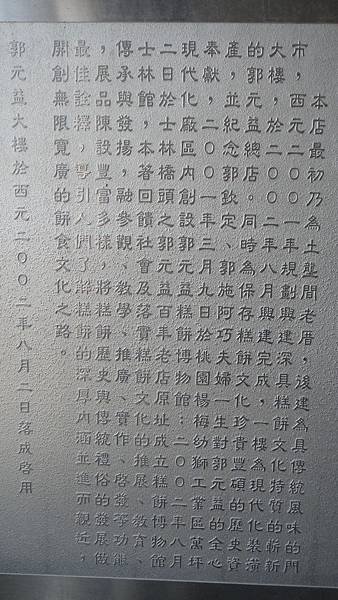 本店最初乃為土墼間老厝，後建為具傳統風味的門
市，西元二００一年規劃興建深具糕餅文化特質的嶄新
大樓，於二００二年八月興建完成，一樓為現代化裝潢
的郭元益總店。同時為保存糕餅文化珍貴豐碩的歷史資
產，並紀念郭欽定、郭施阿巧夫婦一生對郭元益的全心
奉獻，二００一年三月九日於桃園楊梅幼獅工業區萬坪
現代化廠區內創設郭元益糕餅博物館；二００二年八月
二日於士林橋頭之郭元益百年老店原址成立糕餅博物館
士林館，本著回饋社會及落實糕餅文化的推展、教育、
傳承與發揚，融參觀、教學、推廣、實作、啟發等功能
，展品陳設豐富多樣，將糕餅歷史與傳統禮俗的發展做
最佳詮釋，導引人們了解糕餅的深厚內涵並進而親近，
開創無限寬廣的餅食文化之路。
郭元益大樓於西元二００二年八月二日落成啓用